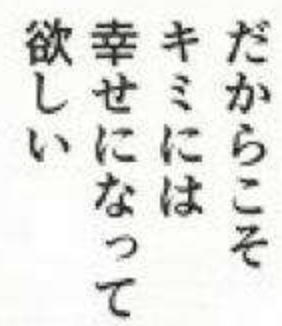 だからこそ
キミには
幸せになって
欲しい